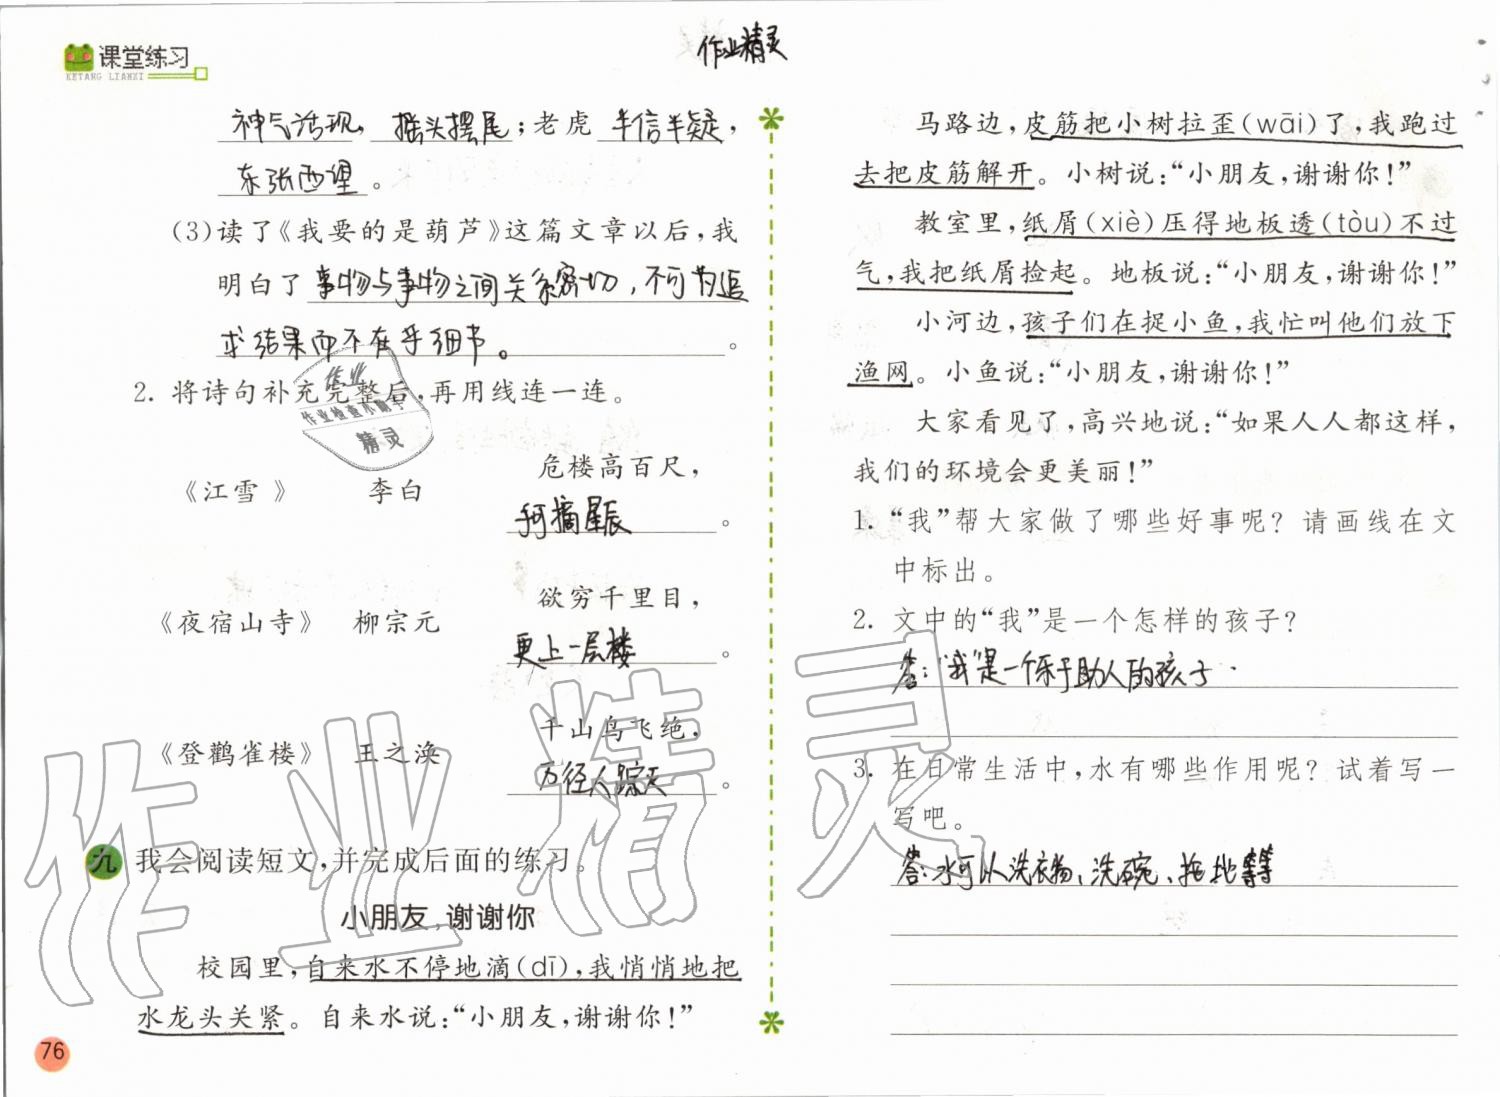 课堂练习
KETANG LIANXI
作业精灵
神气活现, 摇头摆尾;老虎 半信半疑,
东张西望。
(3)读了《我要的是葫芦》这篇文章以后,我
明白了 事物与事物之间关系密切,不可为追
求结果而不在乎细节。 。
2. 将诗句补充完整后,再用线连一连。
作业
作业检查小助手
精灵
《江雪 》 李白 危楼高百尺,
手可摘星辰 。
《夜宿山寺》 柳宗元 欲穷千里目,
更上一层楼 。
《登鹳雀楼》 王之涣 千山鸟飞绝,
万径人踪灭 。
九 我会阅读短文,并完成后面的练习。
小朋友,谢谢你
校园里,自来水不停地滴(dī),我悄悄地把
水龙头关紧。自来水说:“小朋友,谢谢你!”
76
马路边,皮筋把小树拉歪(wāi)了,我跑过
去把皮筋解开。小树说:“小朋友,谢谢你!”
教室里,纸屑(xiè)压得地板透(tòu)不过
气,我把纸屑捡起。地板说:“小朋友,谢谢你!”
小河边,孩子们在捉小鱼,我忙叫他们放下
渔网。小鱼说:“小朋友,谢谢你!”
大家看见了,高兴地说:“如果人人都这样,
我们的环境会更美丽!”
1. “我”帮大家做了哪些好事呢?请画线在文
中标出。
2. 文中的“我”是一个怎样的孩子?
答:“我”是一个乐于助人的孩子.
3. 在日常生活中,水有哪些作用呢?试着写一
写吧。
答:水可以洗衣物、洗碗、拖地等等
作业精灵